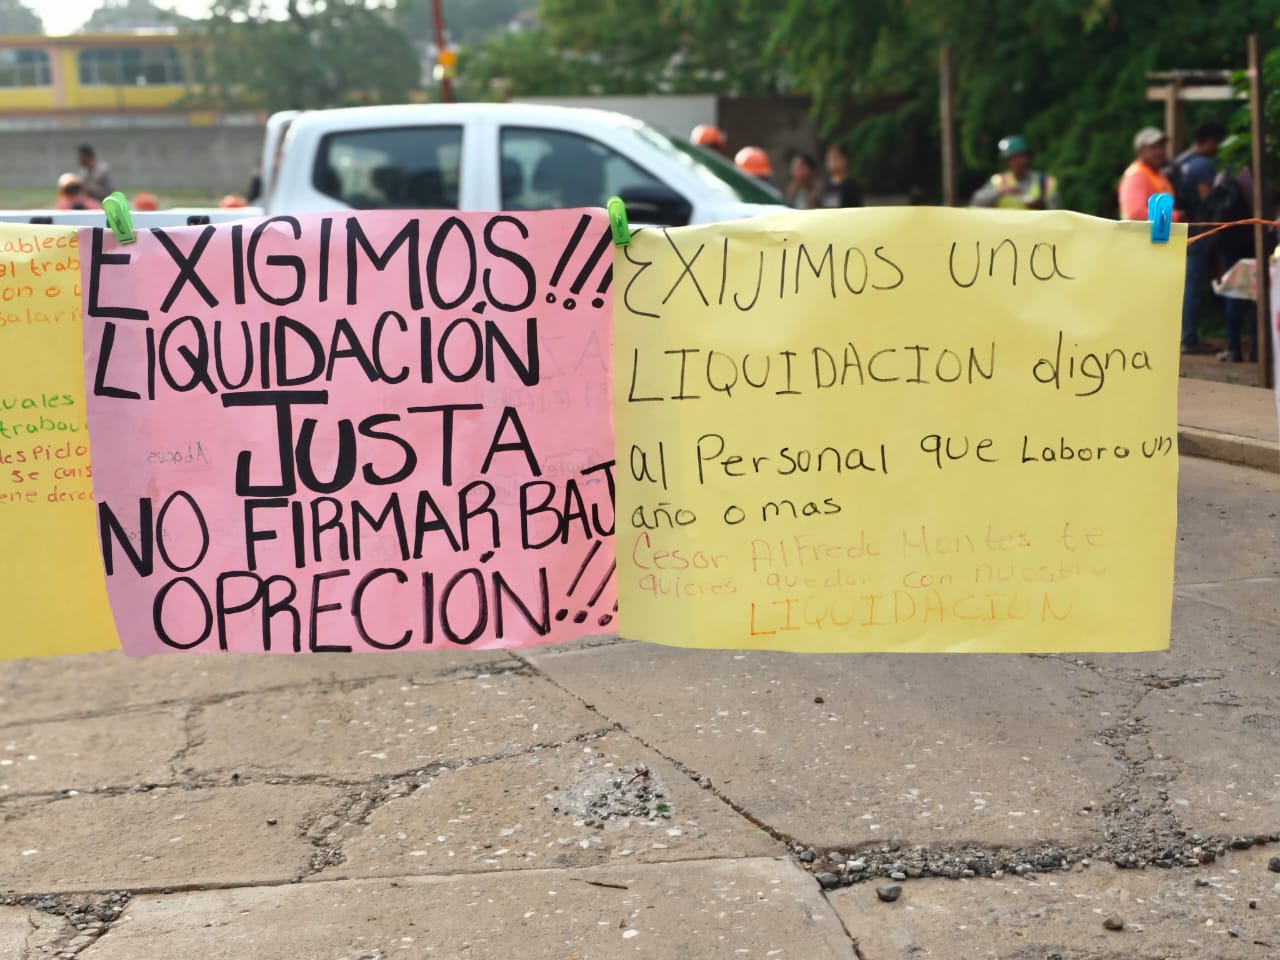 ablece
el trab
on o u
salari
uales
trabau
des Pido
se cons
ene derec
EXIGIMOS!!!
LIQUIDACIÓN
JUSTA
NO FIRMAR BAJ
OPRECIÓN!!!
EXIJIMOS una
LIQUIDACION digna
al Personal que Laboro un
año o mas
Cesar Alfredo Montes te
quieres quedar con nuestra
LIQUIDACION